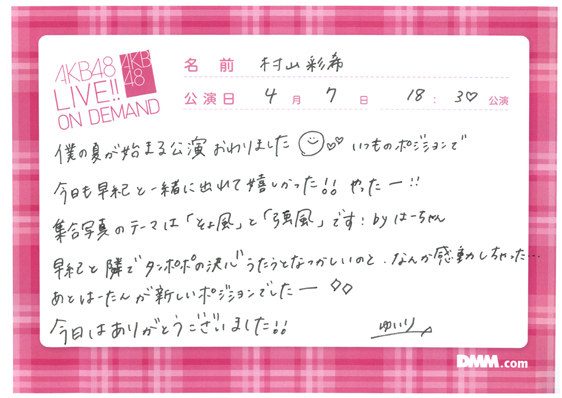 AKB48
LIVE!!
ON DEMAND
AKB
48
名前 村山彩希
公演日 4月7日 18:30公演
僕の夏が始まる公演おわりました いつものポジションで
今日も早紀と一緒に出れて嬉しかった!! やったー!!
集合写真のテーマは「そよ風」と「強風」です! by はーちゃん
早紀と隣でタンポポの決心うたうとなつかしいのと、なんか感動しちゃった…
あとはーたんが新しいポジションでしたー
今日はありがとうございました!!
ゆいり
DMM.com